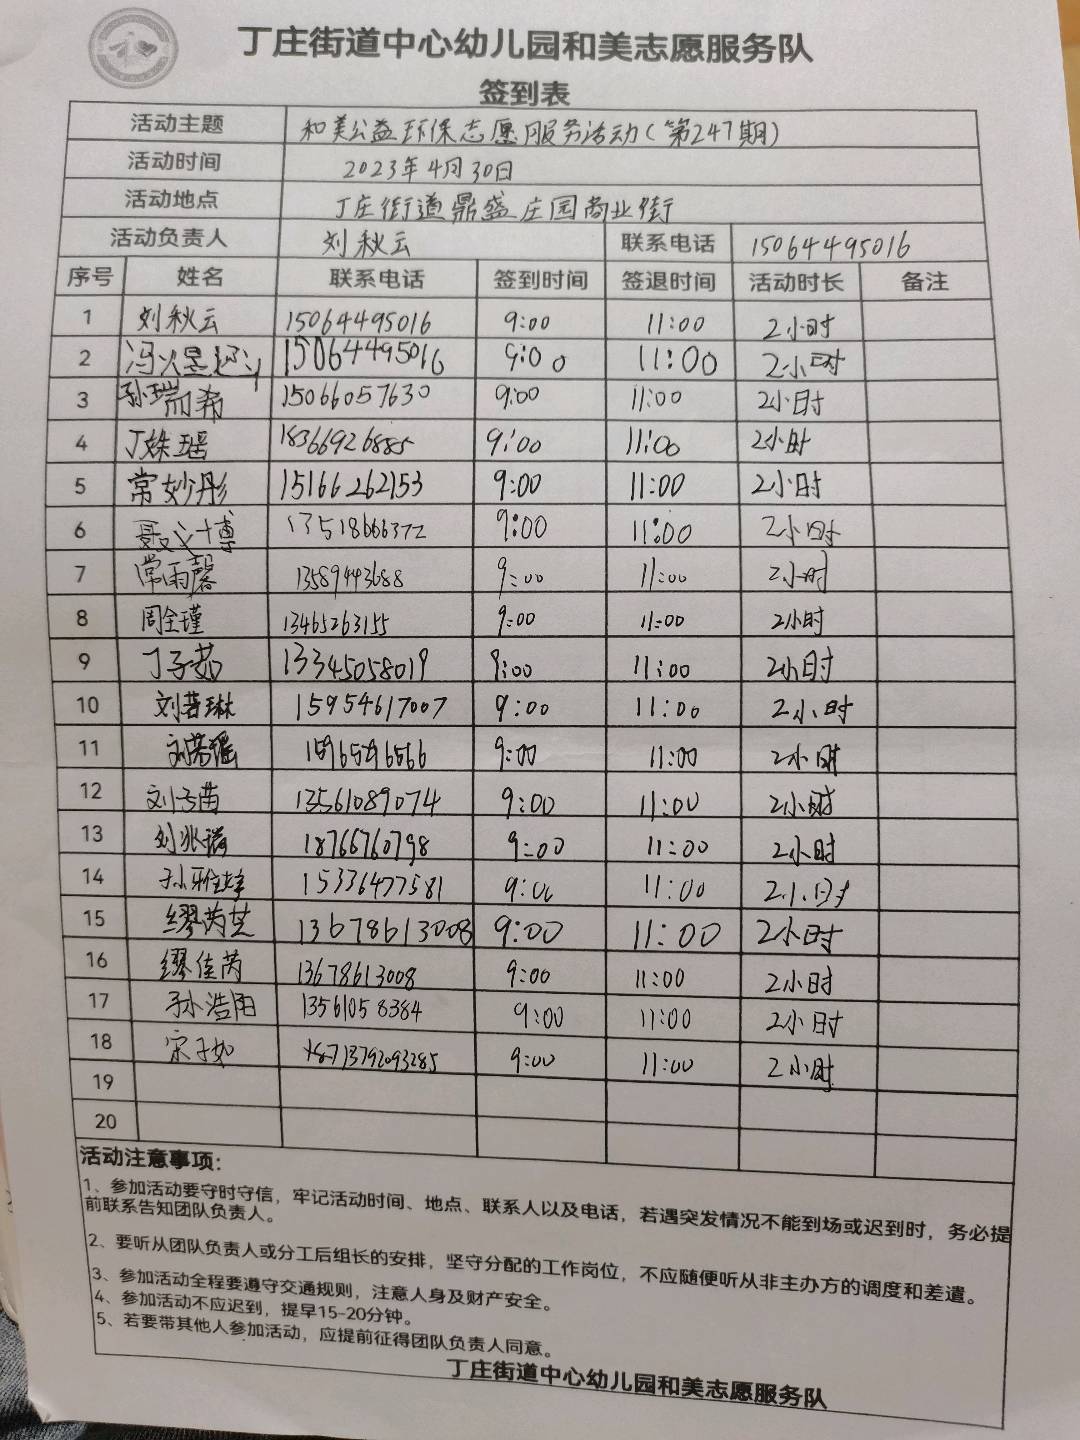 丁庄街道中心幼儿园和美志愿服务队
签到表
活动主题 和美公益环保志愿服务活动(第247期)
活动时间 2023年4月30日
活动地点 丁庄街道鼎盛庄园商业街
活动负责人 刘秋云 联系电话 15064495016
序号 姓名 联系电话 签到时间 签退时间 活动时长 备注
1 刘秋云 15064495016 9:00 11:00 2小时
2 15064495016 9:00 11:00 2小时
3 孙瑞希 15066057630 9:00 11:00 2小时
4 丁姝瑶 18366926885 9:00 11:00 2小时
5 常妙彤 15166262153 9:00 11:00 2小时
6 13518666372 9:00 11:00 2小时
7 常雨馨 13589443688 9:00 11:00 2小时
8 周全瑾 13465263155 9:00 11:00 2小时
9 丁子茹 13345058019 9:00 11:00 2小时
10 刘若琳 15954617007 9:00 11:00 2小时
11 15965296566 9:00 11:00 2小时
12 刘子苗 13561089074 9:00 11:00 2小时
13 刘兆瑞 18766760798 9:00 11:00 2小时
14 15336477581 9:00 11:00 2小时
15 缪芮芝 13678613008 9:00 11:00 2小时
16 缪佳芮 13678613008 9:00 11:00 2小时
17 孙浩阳 13561058384 9:00 11:00 2小时
18 宋子如 9:00 11:00 2小时
19
20
活动注意事项:
1、参加活动要守时守信，牢记活动时间、地点、联系人以及电话，若遇突发情况不能到场或迟到时，务必提
前联系告知团队负责人。
2、要听从团队负责人或分工后组长的安排，坚守分配的工作岗位，不应随便听从非主办方的调度和差遣。
3、参加活动全程要遵守交通规则，注意人身及财产安全。
4、参加活动不应迟到，提早15-20分钟。
5、若要带其他人参加活动，应提前征得团队负责人同意。
丁庄街道中心幼儿园和美志愿服务队